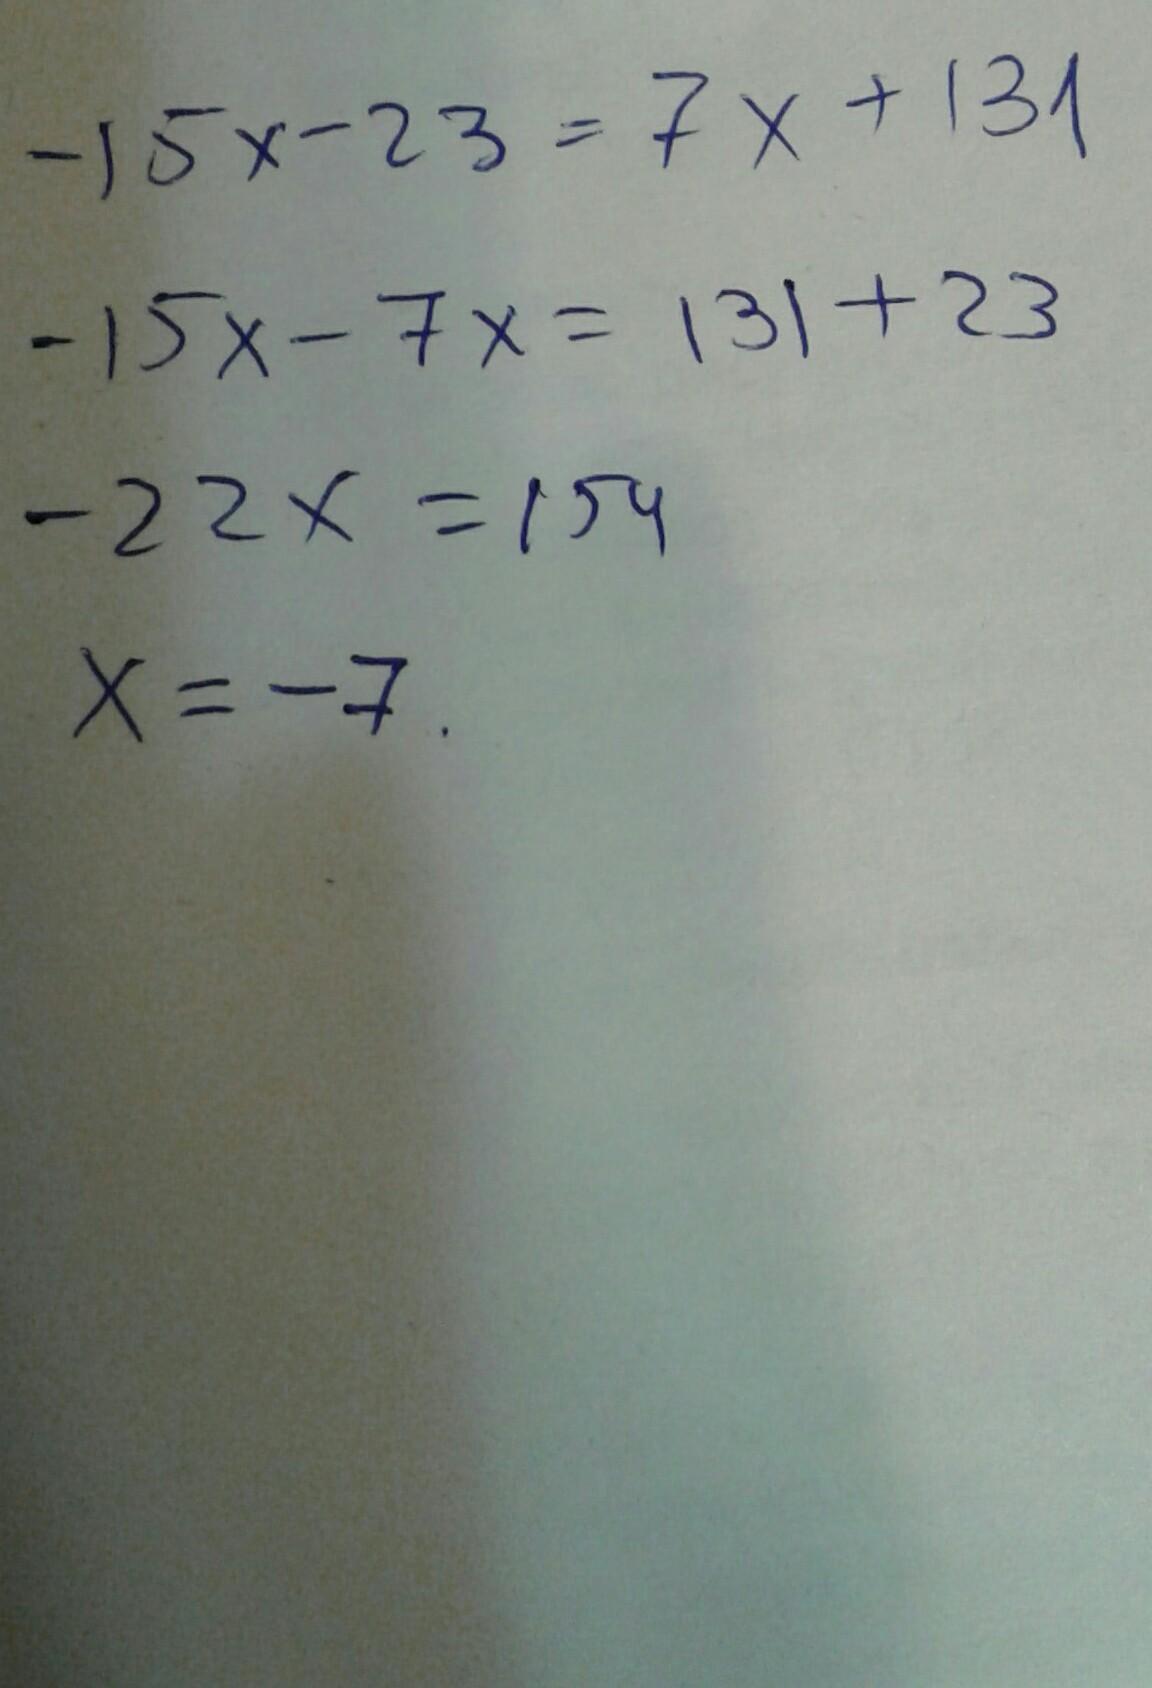 -15x-23=7x+131
-15x-7x=131+23
-22x=154
x=-7.